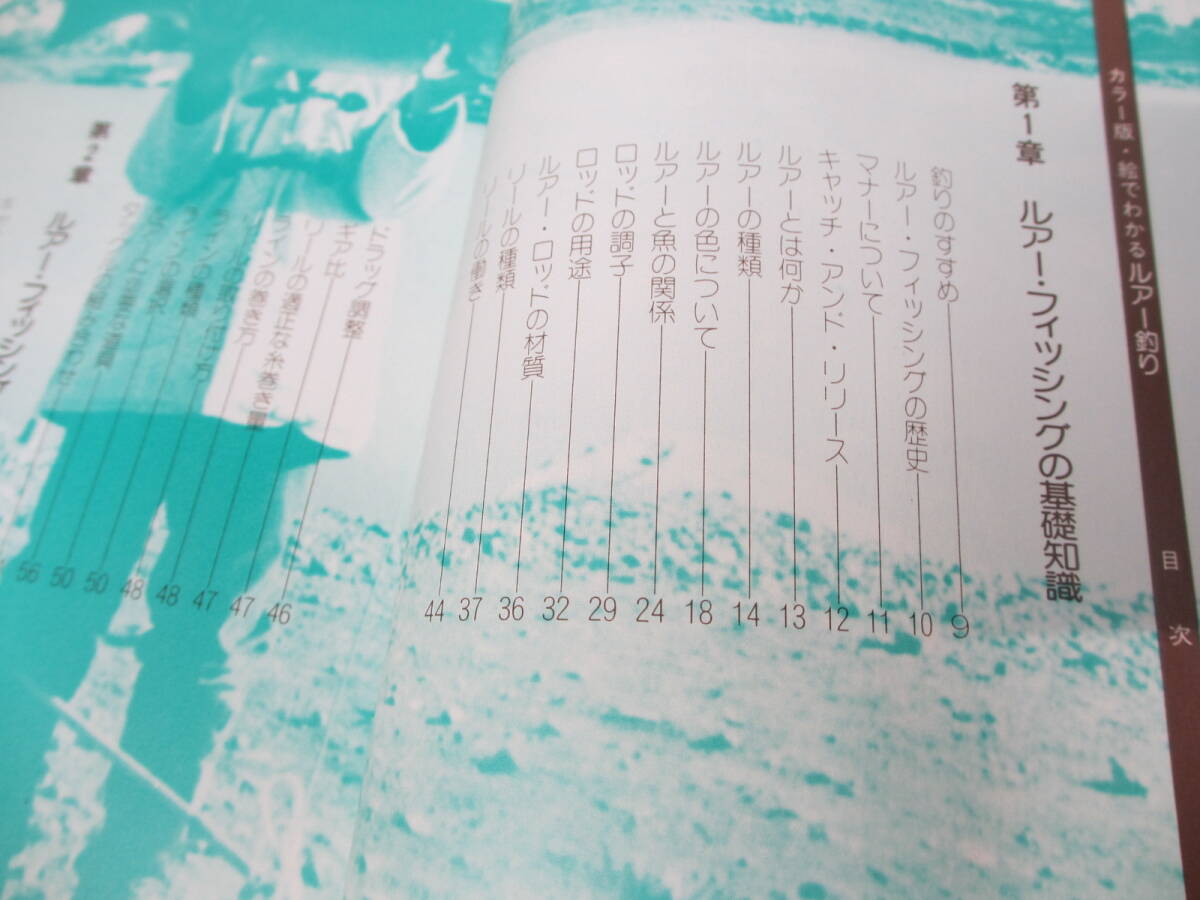 カラー版・絵でわかるルアー釣り
目次
第1章 ルアー・フィッシングの基礎知識
釣りのすすめ 9
ルアー・フィッシングの歴史 10
マナーについて 11
キャッチ・アンド・リリース 12
ルアーとは何か 13
ルアーの種類 14
ルアーの色について 18
ルアーと魚の関係 24
ロッドの調子 29
ロッドの用途 32
ルアー・ロッドの材質 36
リールの種類 37
リールの働き 44
ドラッグ調整 46
ギア比 47
リールの適正な糸巻き量 47
ラインの巻き方 48
リールの取り付け方 48
ラインの種類 50
ラインの選択 50
56
第2章 ルアー・フィッシング